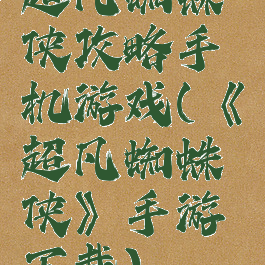 超凡蜘蛛
侠攻略手
机游戏(《
超凡蜘蛛
侠》手游
下载)